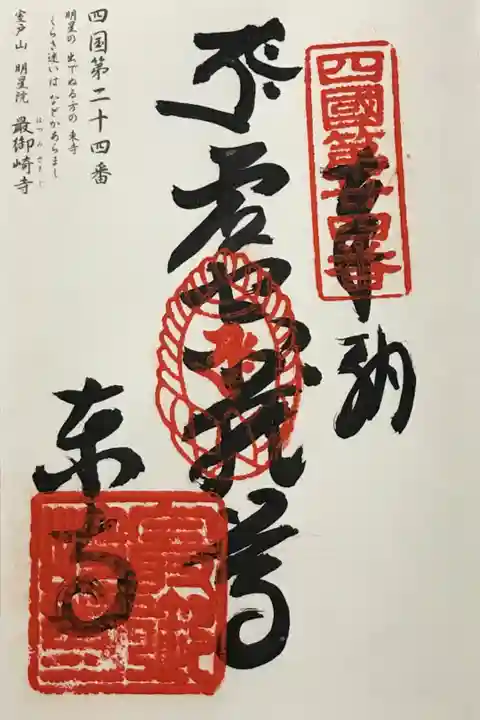 四國第廿四番
奉納
虚空蔵尊
東寺
四国第二十四番
明星の 出でぬる方の 東寺
くらき迷いは などかあらまし
室戸山 明星院 最御崎寺
ほつみさきじ